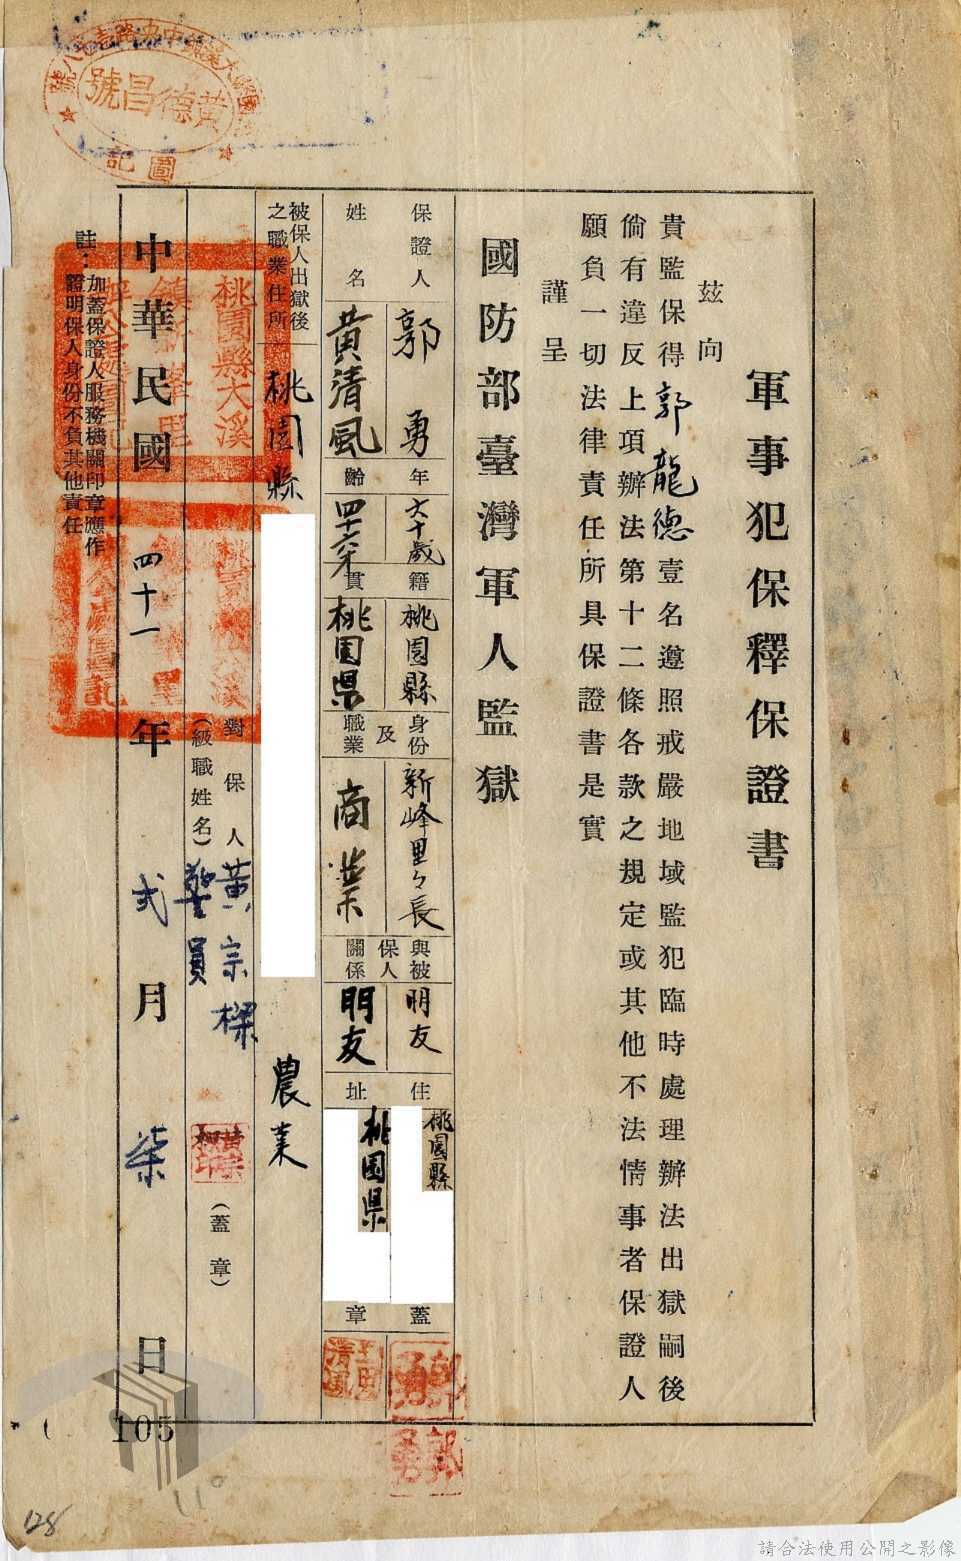 軍事犯保釋保證書
茲向
貴監保得郭龍德壹名遵照戒嚴地域監犯臨時處理辦法出獄嗣後
倘有違反上項辦法第十二條各款之規定或其他不法情事者保證人
願負一切法律責任所具保證書是實
謹呈
國防部臺灣軍人監獄
保證人姓名
郭勇
黃清風
年齡
六十歲
籍貫
桃園縣
桃园県
身份及職業
新峰里々長
商業
與被保人關係
朋友
朋友
住址
桃園縣
桃园県
蓋章
郭勇
郭勇
被保人出獄後之職業住所
桃園縣
農業
對保人
(級職姓名)
黃宗樑
警員
(蓋章)
中華民國四十一年弍月柒日
註：加蓋保證人服務機關印章應作
證明保人身份不負其他責任
黃德昌號
圖記
桃園縣大溪
105
110
128
請合法使用公開之影像